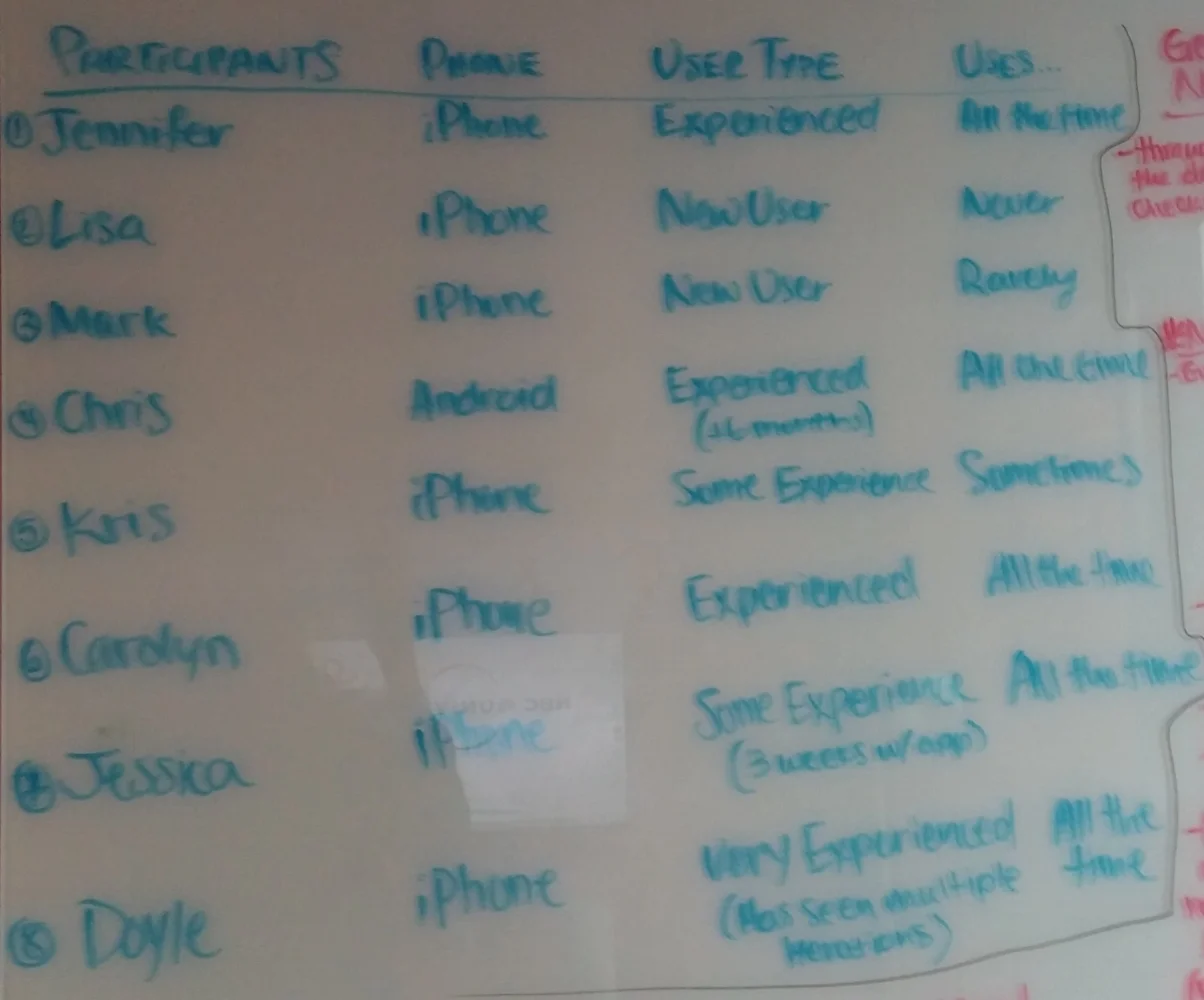 PARTICIPANTS PHONE USER TYPE USES...
① Jennifer iPhone Experienced All the time
② Lisa iPhone New User Never
③ Mark iPhone New User Rarely
④ Chris Android Experienced All the time
(+6 months)
⑤ Kris iPhone Some Experience Sometimes
⑥ Carolyn iPhone Experienced All the time
⑦ Jessica iPhone Some Experience All the time
(3 weeks w/ app)
⑧ Doyle iPhone Very Experienced All the
(Has seen multiple time
iterations)
the